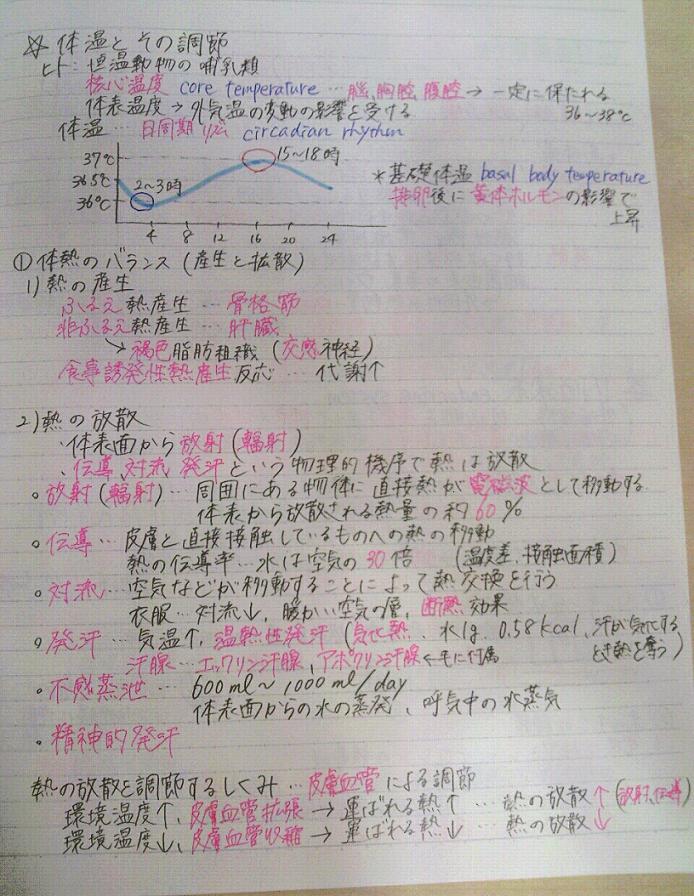 ☆ 体温とその調節
ヒト：恒温動物の哺乳類
核心温度 core temperature … 脳、胸腔、腹腔 → 一定に保たれる
36～38℃
体表温度 → 外気温の変動の影響を受ける
体温 … 日周期リズム circadian rhythm
37℃
36.5℃
36℃
2～3時
15～18時
4 8 12 16 20 24
＊基礎体温 basal body temperature
排卵後に黄体ホルモンの影響で
上昇
① 体熱のバランス（産生と拡散）
1) 熱の産生
ふるえ熱産生 … 骨格筋
非ふるえ熱産生 … 肝臓
↘ 褐色脂肪組織（交感神経）
食事誘発性熱産生反応 … 代謝↑
2) 熱の放散
・体表面から放射（輻射）
・伝導、対流、発汗という物理的機序で熱は放散
○放射（輻射）… 周囲にある物体に直接熱が電磁波として移動する
体表から放散される熱量の約60％
○伝導 … 皮膚と直接接触しているものへの熱の移動
熱の伝導率 … 水は空気の30倍 （温度差、接触面積）
○対流 … 空気などが移動することによって熱交換を行う
衣服 … 対流↓、暖かい空気の層、断熱効果
○発汗 … 気温↑、温熱性発汗（気化熱、水1g、0.58kcal、汗が気化するとき熱を奪う）
汗腺 … エックリン汗腺、アポクリン汗腺 ← 毛に付属
・不感蒸泄 … 600ml～1000ml/day
体表面からの水の蒸発、呼気中の水蒸気
・精神的発汗
熱の放散を調節するしくみ … 皮膚血管による調節
環境温度↑、皮膚血管拡張 → 運ばれる熱↑ … 熱の放散↑（放射、伝導）
環境温度↓、皮膚血管収縮 → 運ばれる熱↓ … 熱の放散↓